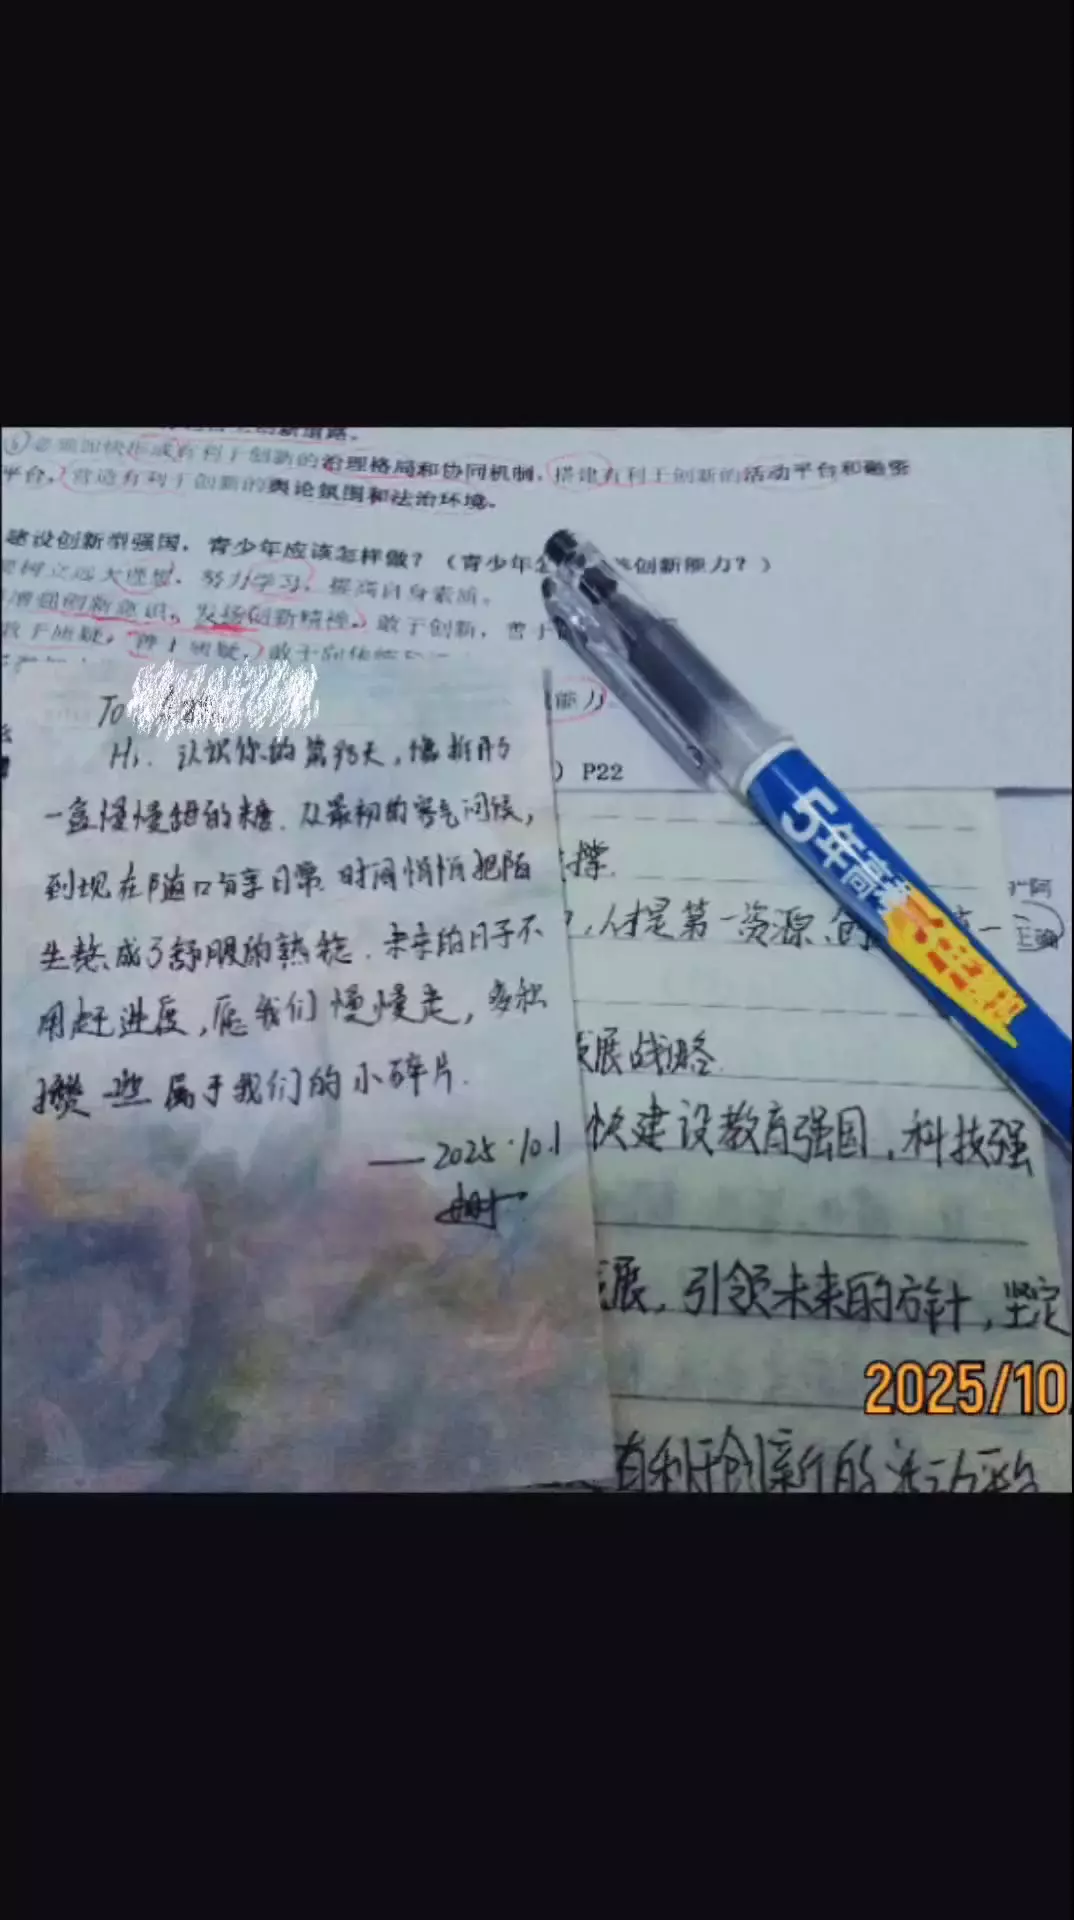 ⑥必须加快形成有利于创新的治理格局和协同机制，搭建有利于创新的活动平台和融资
平台，营造有利于创新的舆论氛围和法治环境。
建设创新型强国，青少年应该怎样做？（青少年怎 创新能力？）
树立远大理想，努力学习，提高自身素质。
增强创新意识，发扬创新精神，敢于创新，善于
敢于质疑，善于质疑，敢于
能力
To
Hi，认识你的第98天，像拆开
一盒慢慢甜的糖．从最初的客气问候，
到现在随口分享日常．时间悄悄把陌
生熬成了舒服的熟稔．未来的日子不
用赶进度，愿我们慢慢走，多积
攒一些属于我们的小碎片．
——2025.10.1
) P22
撑．
，人才是第一资源、创 第一
发展战略．
快建设教育强国，科技强
发展，引领未来的方针，坚定
有利于创新的活动
5年高考
2025/10